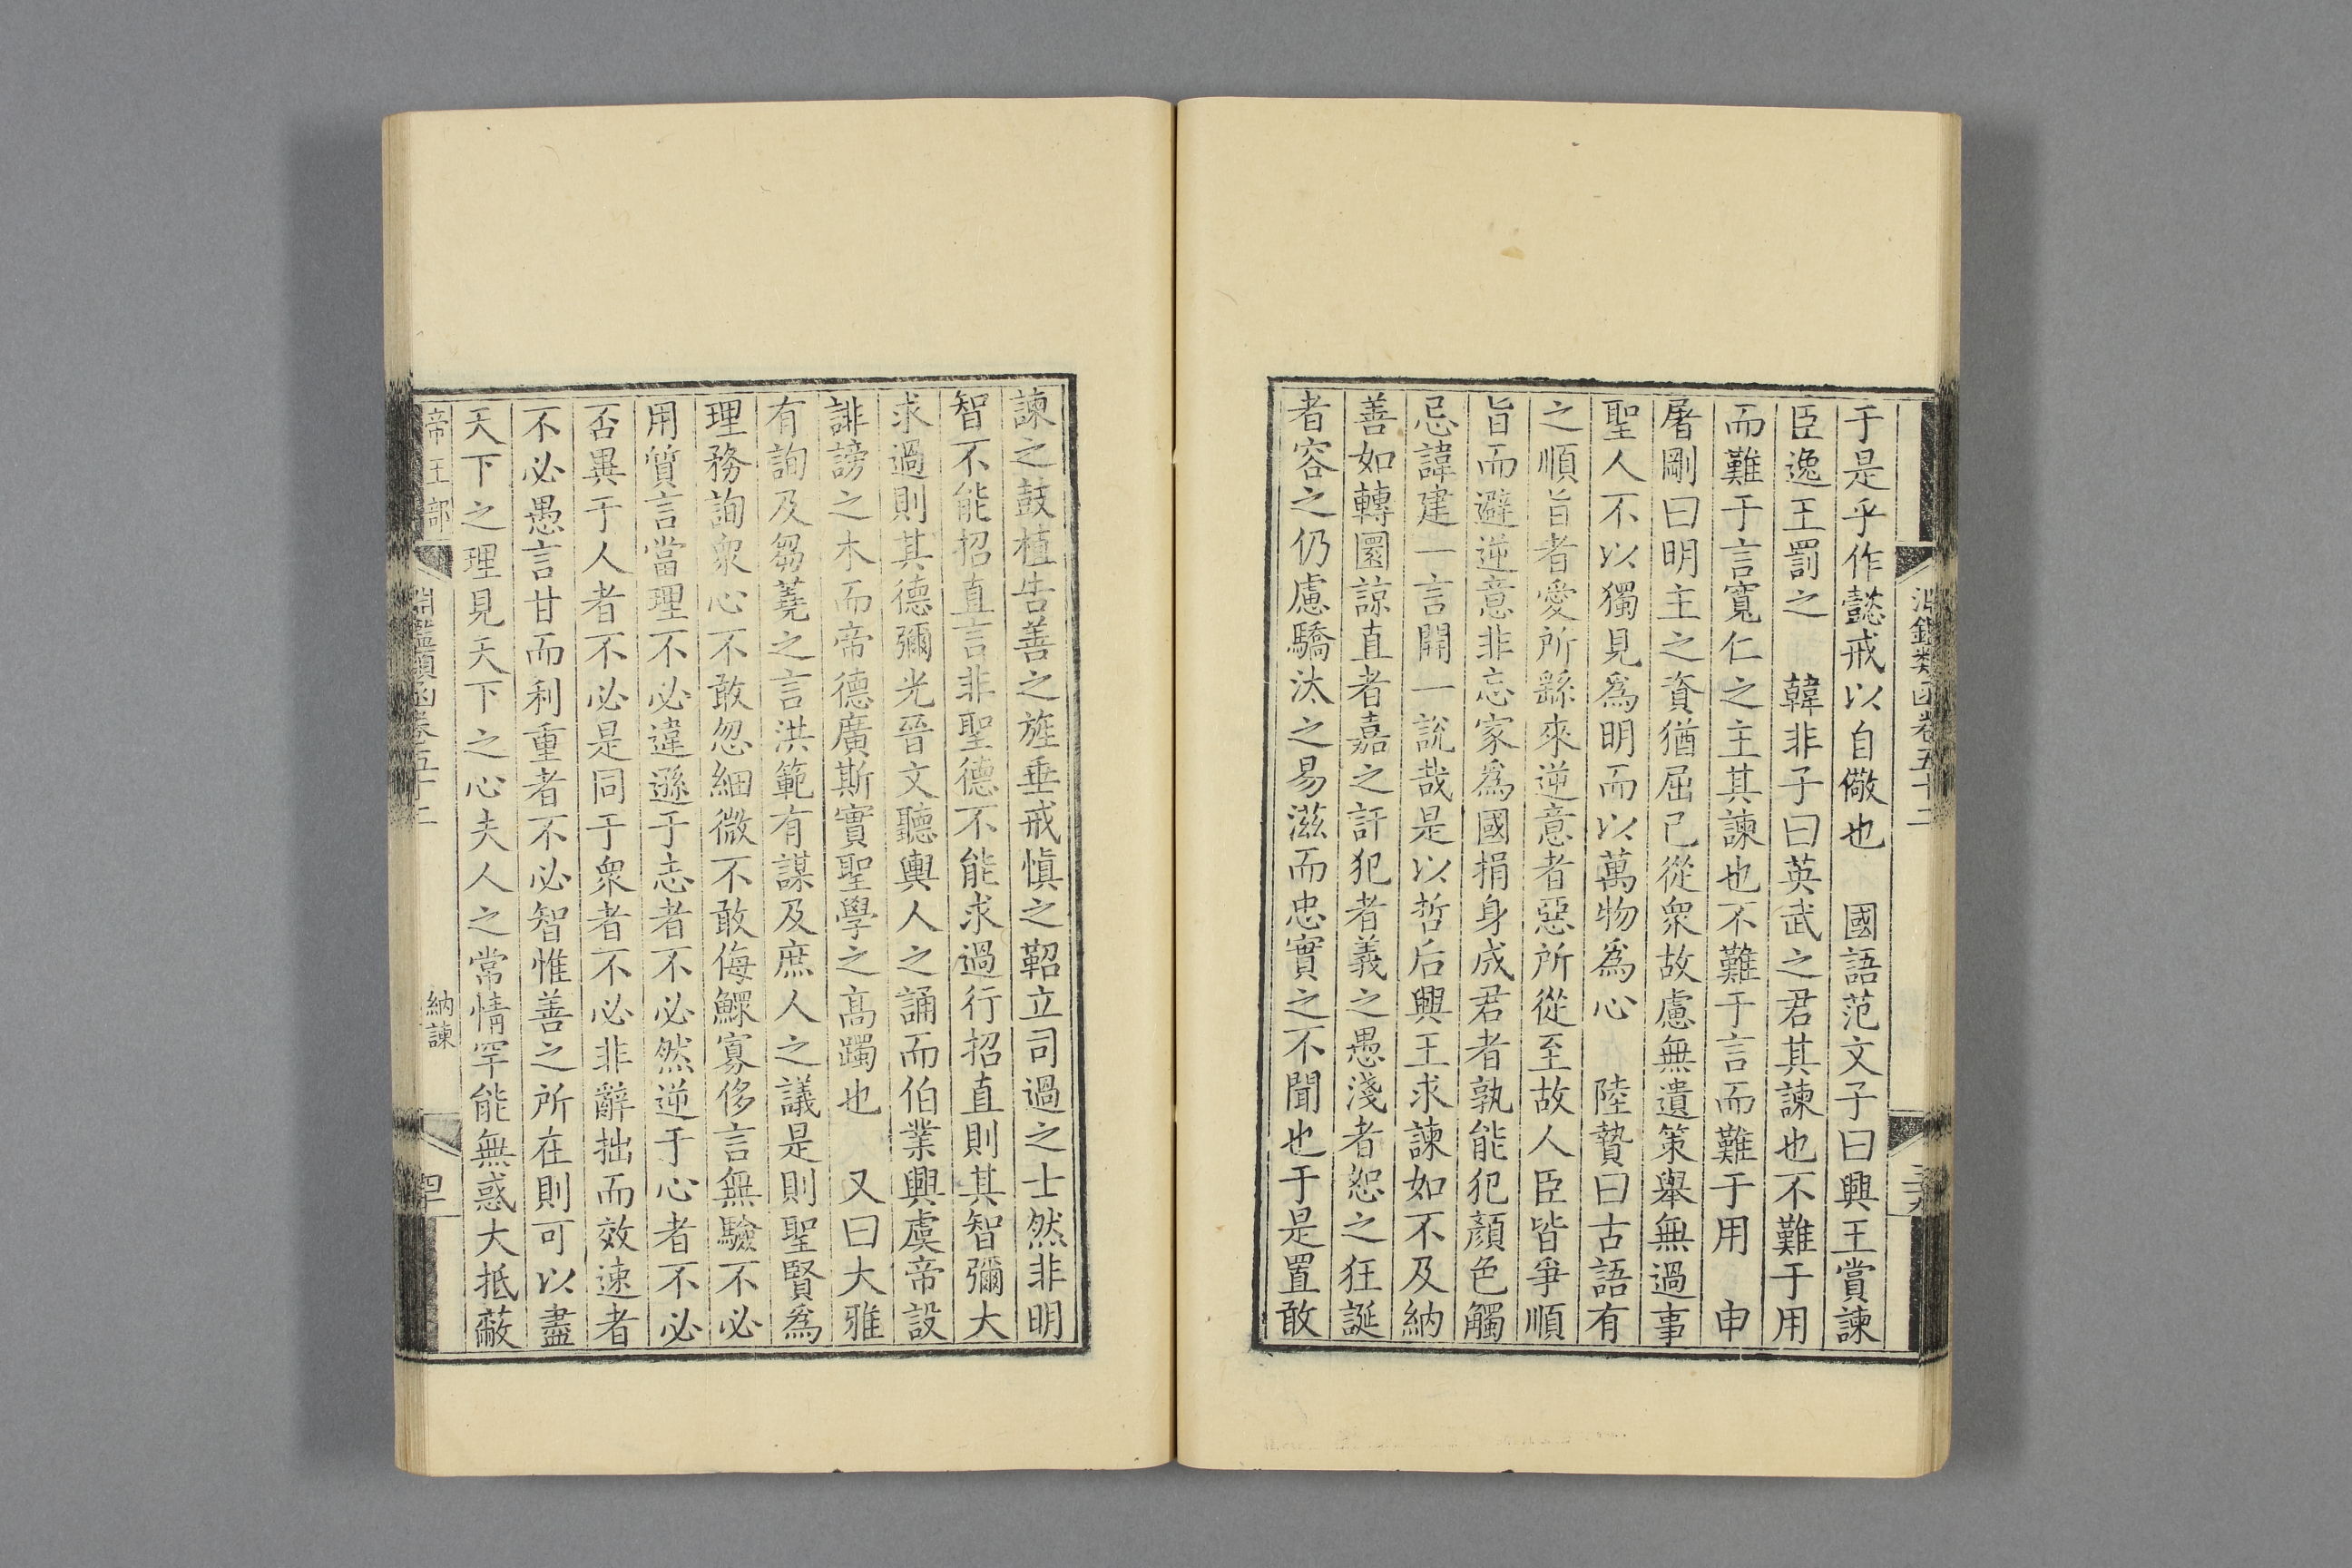 淵鑑類函卷五十二
于是乎作懿戒以自儆也　國語范文子曰興王賞諫
臣逸王罰之　韓非子曰英武之君其諫也不難于用
而難于言寬仁之主其諫也不難于言而難于用　申
屠剛曰明主之資猶屈己從衆故慮無遺策舉無過事
聖人不以獨見爲明而以萬物爲心　陸贄曰古語有
之順旨者愛所繇來逆意者惡所從至故人臣皆爭順
旨而避逆意非忘家爲國捐身成君者孰能犯顏色觸
忌諱建一言開一說哉是以哲后興王求諫如不及納
善如轉圜諒直者嘉之訐犯者義之愚淺者恕之狂誕
者容之仍慮驕汰之易滋而忠實之不聞也于是置敢
諫之鼓植告善之旌垂戒慎之鞀立司過之士然非明
智不能招直言非聖德不能求過行招直則其智彌大
求過則其德彌光晉文聽輿人之誦而伯業興虞帝設
誹謗之木而帝德廣斯實聖學之髙躅也　又曰大雅
有詢及芻蕘之言洪範有謀及庶人之議是則聖賢爲
理務詢衆心不敢忽細微不敢侮鰥寡侈言無驗不必
用質言當理不必違遜于志者不必然逆于心者不必
否異于人者不必是同于衆者不必非辭拙而效速者
不必愚言甘而利重者不必智惟善之所在則可以盡
天下之理見天下之心夫人之常情罕能無惑大抵蔽
帝王部　淵鑑類函卷五十二　納諫　四十